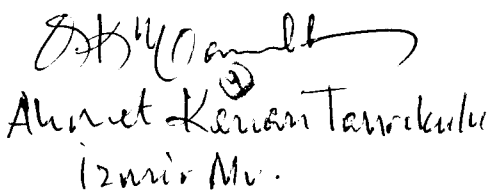 Ahmet Kenan Tanrıkulu
İzmir Mv.